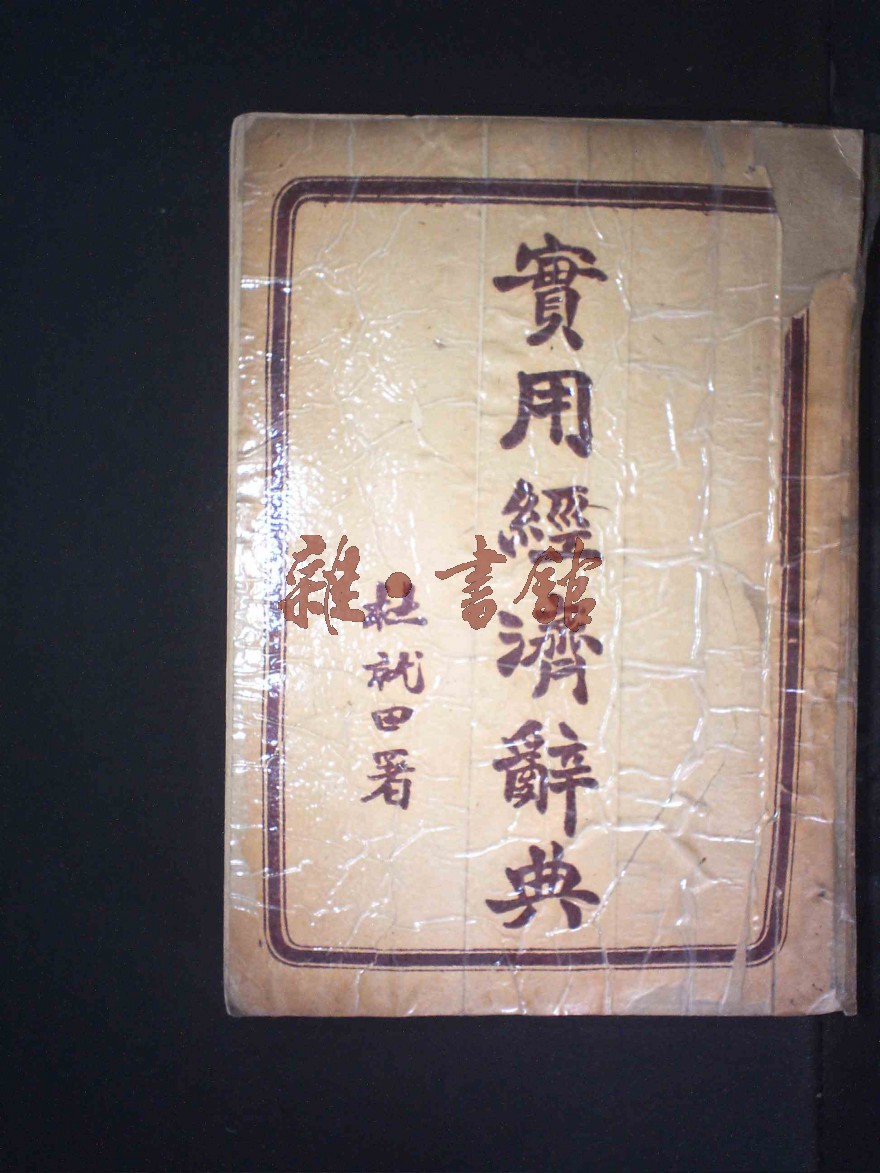 實用經濟辭典
杜就田署
雜·書館